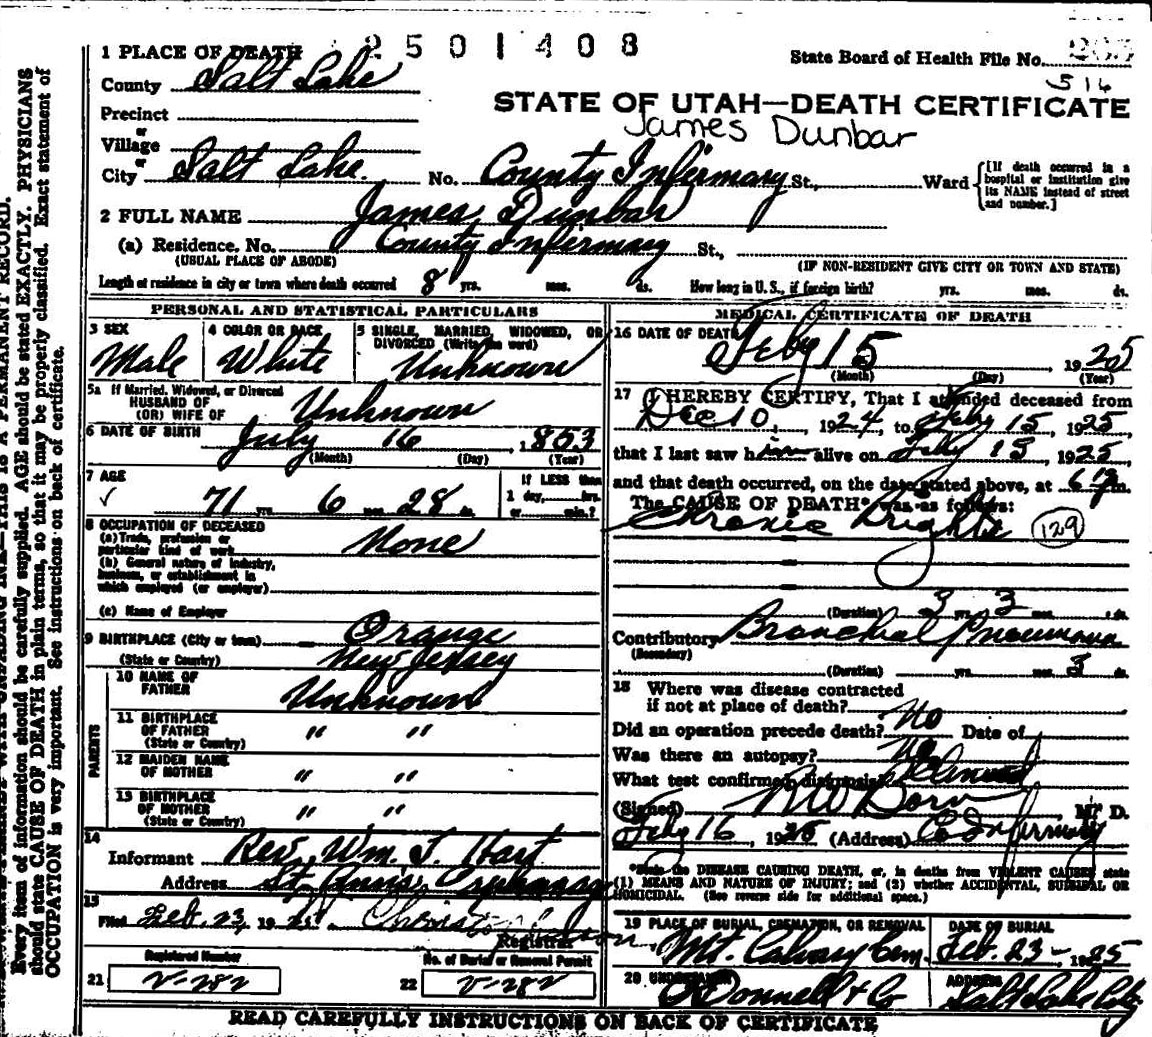 2501408
1 PLACE OF DEATH
State Board of Health File No.
516
County Salt Lake
STATE OF UTAH—DEATH CERTIFICATE
James Dunbar
Precinct
or
Village
or
City Salt Lake. No. County Infirmary St., Ward [If death occurred in a hospital or institution give its NAME instead of street and number.]
2 FULL NAME James Dunbar
(a) Residence. No. County Infirmary St.,
(USUAL PLACE OF ABODE) (IF NON-RESIDENT GIVE CITY OR TOWN AND STATE)
Length of residence in city or town where death occurred 8 yrs. mos. ds. How long in U. S., if foreign birth? yrs. mos. ds.
PERSONAL AND STATISTICAL PARTICULARS
3 SEX Male
4 COLOR OR RACE White
5 SINGLE, MARRIED, WIDOWED, OR DIVORCED (Write the word)
Unknown
5a If Married, Widowed, or Divorced
HUSBAND OF
(OR) WIFE OF Unknown
6 DATE OF BIRTH July 16, 1853
(Month) (Day) (Year)
7 AGE
71 yrs. 6 mos. 28 ds.
If LESS than
1 day, hrs.
or min.?
8 OCCUPATION OF DECEASED
(a) Trade, profession or
particular kind of work None
(b) General nature of industry,
business, or establishment in
which employed (or employer)
(c) Name of Employer
9 BIRTHPLACE (City or town) Orange
(State or Country) New Jersey
PARENTS
10 NAME OF
FATHER Unknown
11 BIRTHPLACE
OF FATHER " "
(State or Country)
12 MAIDEN NAME
OF MOTHER " "
13 BIRTHPLACE
OF MOTHER " "
(State or Country)
14
Informant Rev. Wm. J. Hart
Address St. Ann's Orphanage
15
Filed Feb. 23, 1925
Registrar
Registered Number
21 V-282
No. of Burial or Removal Permit
22 V-282
MEDICAL CERTIFICATE OF DEATH
16 DATE OF DEATH
Feby 15, 1925
(Month) (Day) (Year)
17 I HEREBY CERTIFY, That I attended deceased from
Dec 10, 1924, to Feby 15, 1925,
that I last saw him alive on Feby 15, 1925,
and that death occurred, on the date stated above, at m.
The CAUSE OF DEATH* was as follows:
Chronic Brights 129
(Duration) 3 yrs. 2 mos. ds.
Contributory Bronchial Pneumonia
(Secondary)
(Duration) yrs. mos. 3 ds.
18 Where was disease contracted
if not at place of death?
Did an operation precede death? No Date of
Was there an autopsy? No
What test confirmed diagnosis?
(Signed) M. D.
Feby 16, 1925 (Address) Co Infirmary
*State the DISEASE CAUSING DEATH, or, in deaths from VIOLENT CAUSES state
(1) MEANS AND NATURE OF INJURY; and (2) whether ACCIDENTAL, SUICIDAL OR
HOMICIDAL. (See reverse side for additional space.)
19 PLACE OF BURIAL, CREMATION, OR REMOVAL
Mt. Calvary Cem.
DATE OF BURIAL
Feb. 23-1925
20 UNDERTAKER
O'Donnell & Co
ADDRESS
Salt Lake City
READ CAREFULLY INSTRUCTIONS ON BACK OF CERTIFICATE
THIS IS A PERMANENT RECORD.
Every item of information should be carefully supplied. AGE should be stated EXACTLY. PHYSICIANS
should state CAUSE OF DEATH in plain terms, so that it may be properly classified. Exact statement of
OCCUPATION is very important. See instructions on back of certificate.